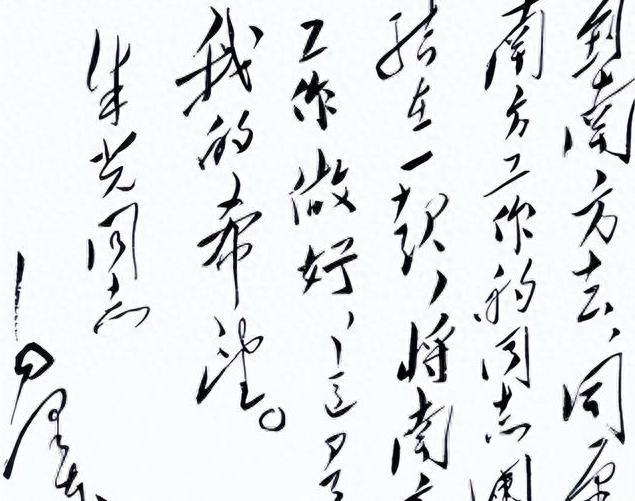 到南方去，同原
南方工作的同志團
结在一起，将南方
工作做好，这是
我的希望。
朱光同志
毛泽东